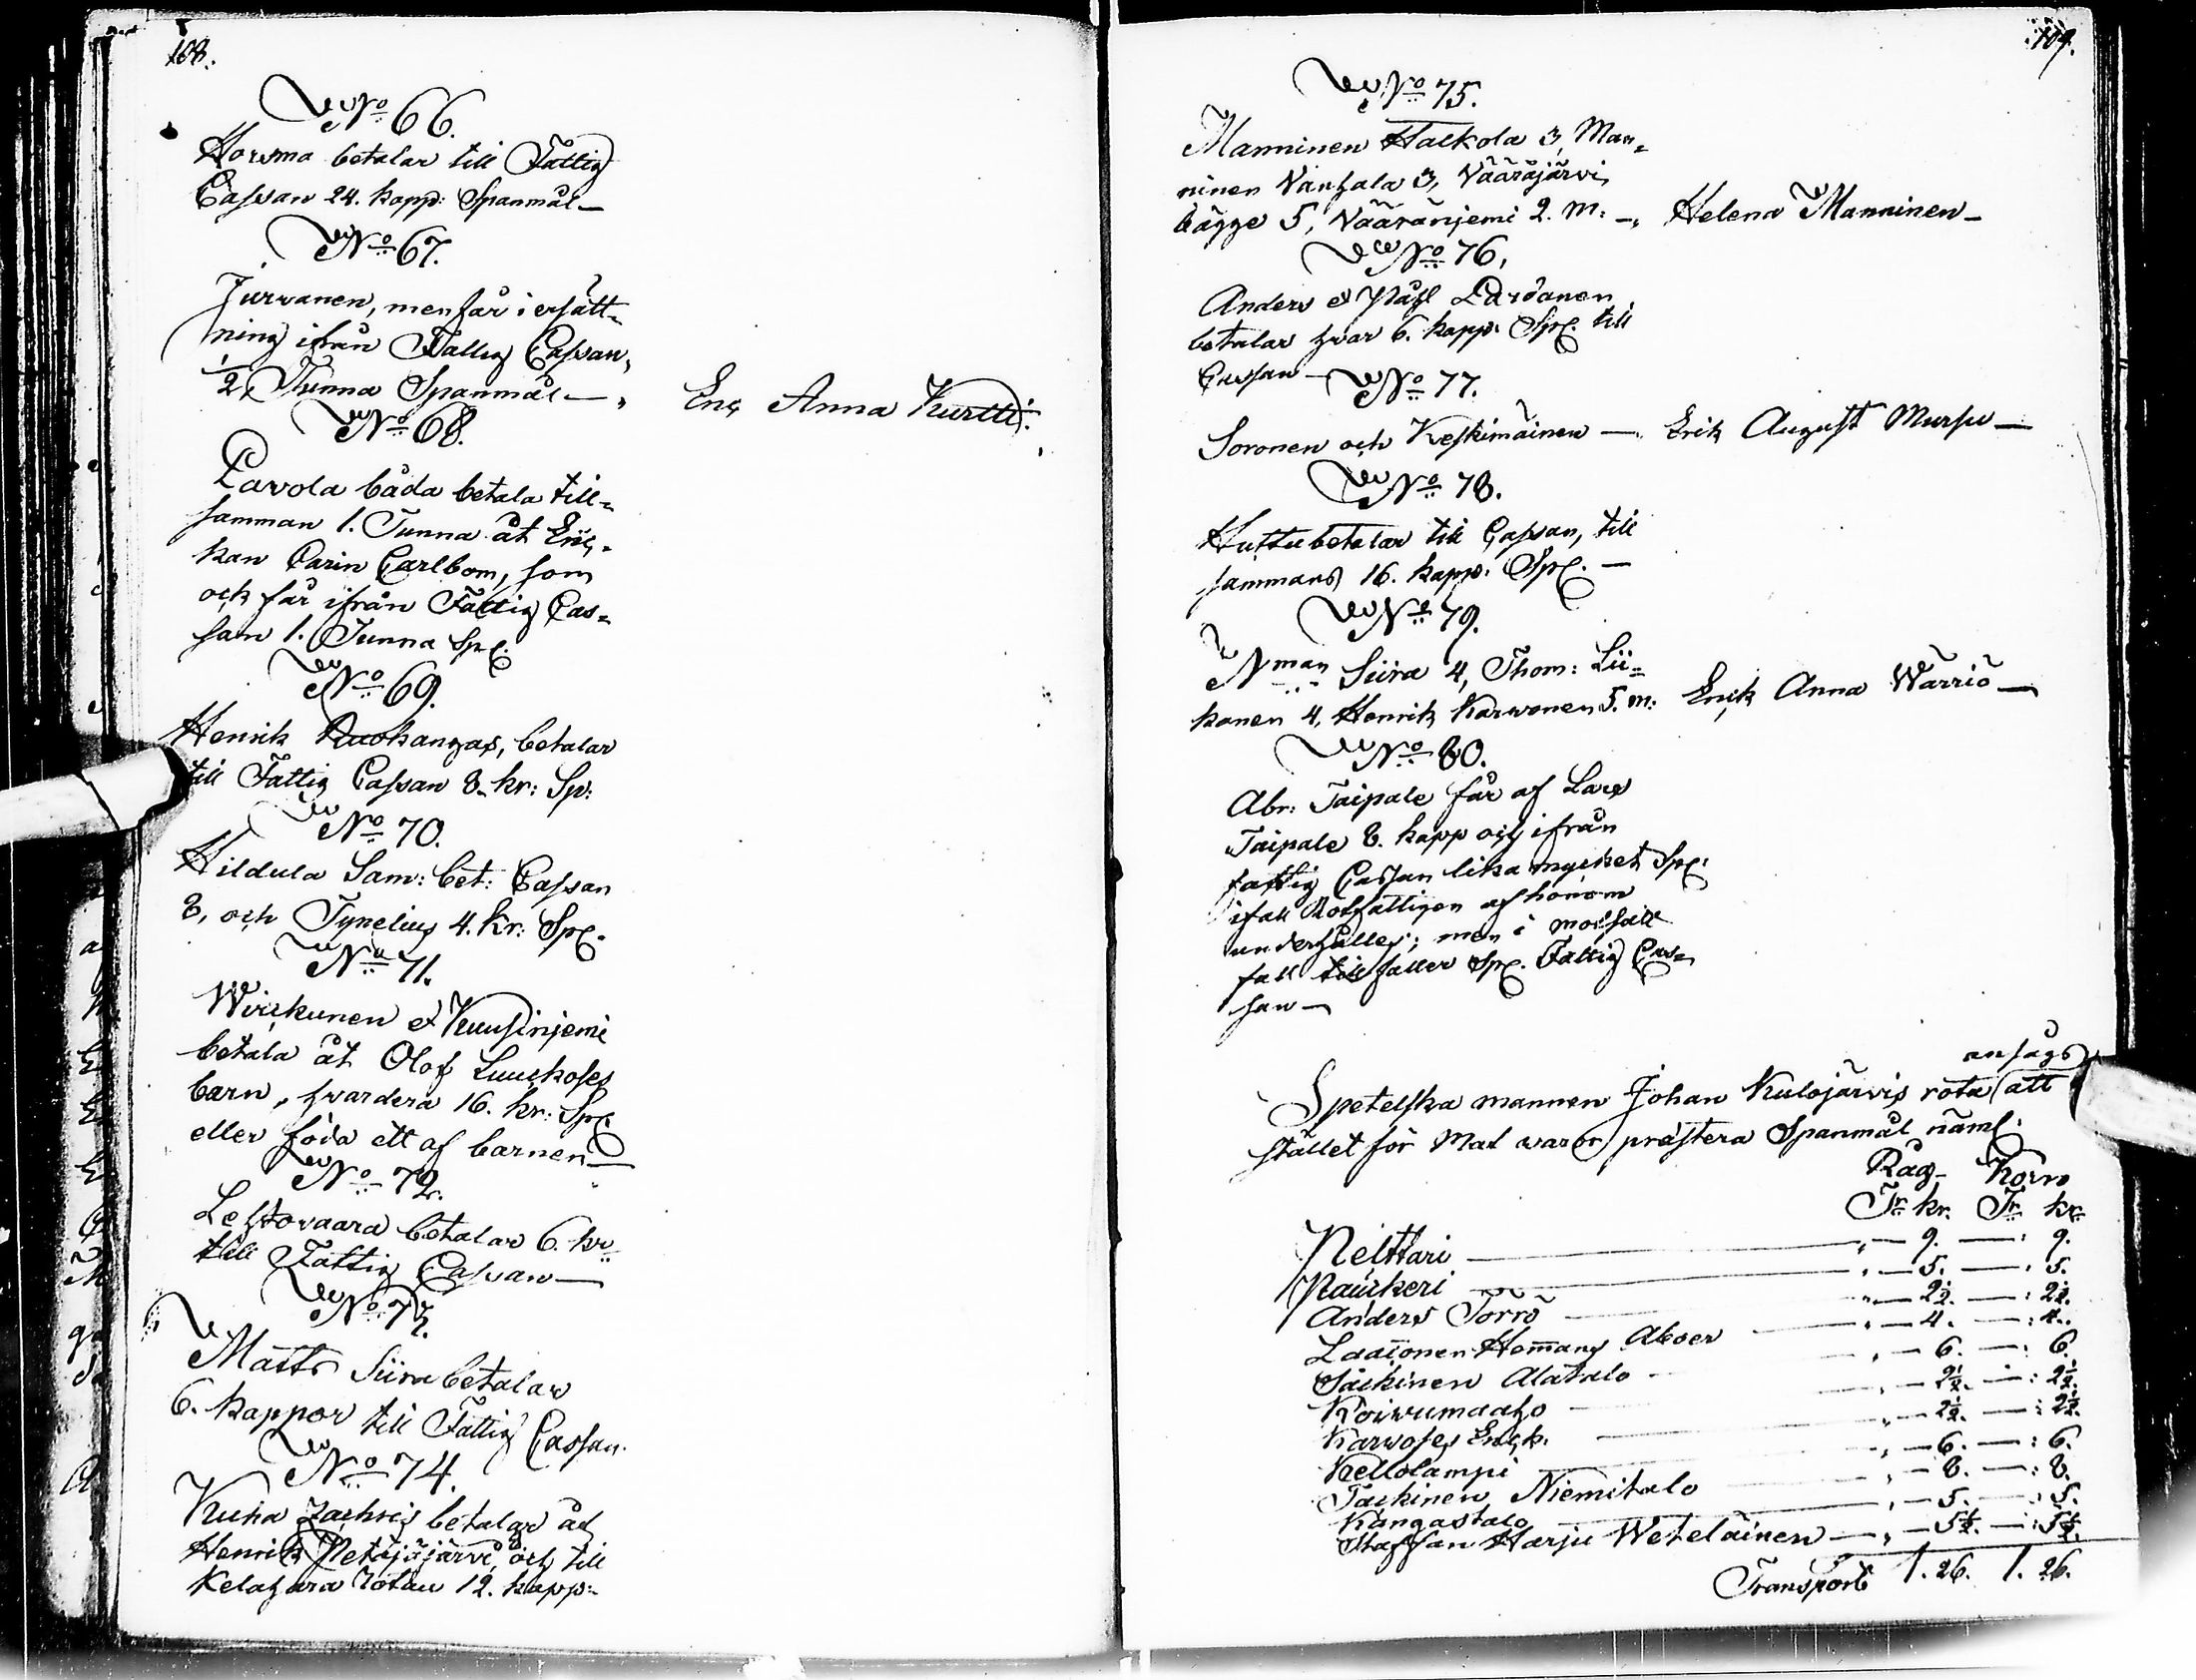 168.
No 66.
Horsma betalar till Fattig
Cassan 24. kapp: Spanmål—
No 67.
Jurvanen, men får i ersätt=
ning ifrån Fattig Cassan,
1/2 Tunna Spanmål—, Enk Anna Kurtti.
No 68.
Pavola båda betala till=
samman 1. Tunna åt Enk,
kan Carin Carlbom, som
ock får ifrån Fattig Cas=
san 1. Tunna Spl.
No 69.
Henrik Ruokangas, betalar
till Fattig Cassan 8. kr: Sp:
No 70.
Hildula Sam: bet: Cassan
8, och Tynelius 4. kr: Spl.
No 71.
Wirkunen et Kuusinjemi
betala åt Olof Luukoses
barn, hvardera 16. kr: Spl
eller föda ett af barnen—
No 72.
Lehtovaara betalar 6. kr
till Fattig Cassan—
No 73.
Matts Siira betalar
6. kappor till Fattig Cassan.
No 74.
Kuha betalar åt
Henrik Petäjäjärvi, och till
Kelahara rotan 12. kapp:
169.
No 75.
Manninen Halkola 3, Man=
ninen Vanhala 3, Vääräjärvi
bägge 5, Vääränjemi 2. m: —, Helena Manninen—
No 76,
Anders et Påhl Lardanen
betalar hvar 6. kapp: Spl. till
Cassan—
No 77.
Soronen och Keskimäinen —, Erik August Mursu—
No 78.
Huttu betalar till Cassan, till
sammans 16. kapp: Spl. —
No 79.
Nman Siira 4, Thom: Lii=
kanen 4, Henrik Karvonen 5. m: Enk Anna Wärriö—
No 80.
Abr: Taipale får af Lars
Taipale 8. kapp och ifrån
fattig Cassan lika mycket Spl:
ifall Rotfattigen af honom
underhålles; men i motsatt
fall tillfaller Spl. Fattig Cas=
san—
ansågs
Spetelska mannen Johan Kulojärvis rota att
stället för Mat varor prästera Spanmål näml:
Råg— Korn
Tr kr. Tr kr.
Pelttari — „ — 9. — : 9.
Nauskeri — „ — 5. — : 5.
Anders Törrö — „ — 2½. — : 2½.
Laaionen Hemans Åboer — „ — 4. — : 4.
Säikinen Alatalo — „ — 6. — : 6.
Koivumaaho — „ — 2½. — : 2½.
Karvoses Enk. — „ — 2½. — : 2½.
Kellolampi — „ — 6. — : 6.
Taskinen Niemitalo — „ — 8. — : 8.
Kangastalo — „ — 5. — : 5.
Staffan Harju Wetelainen — „ — 5½. — : 5½.
Transport 1. 26. 1. 26.